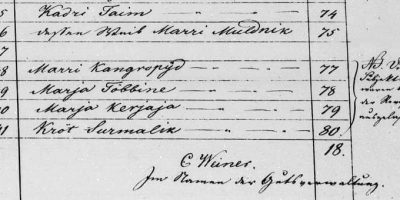 5 Kadri Taim — — — 74
6 dessen Weib Marri Muldnik 75
7
8 Marri Kangropijd — — 77
9 Marja Tobbine — — — 78
0 Marja Kerjaja — — — 79
1 Kröt Surmalik — — — 80
18.
C Weiner.
Im Namen der Gutsverwaltung.